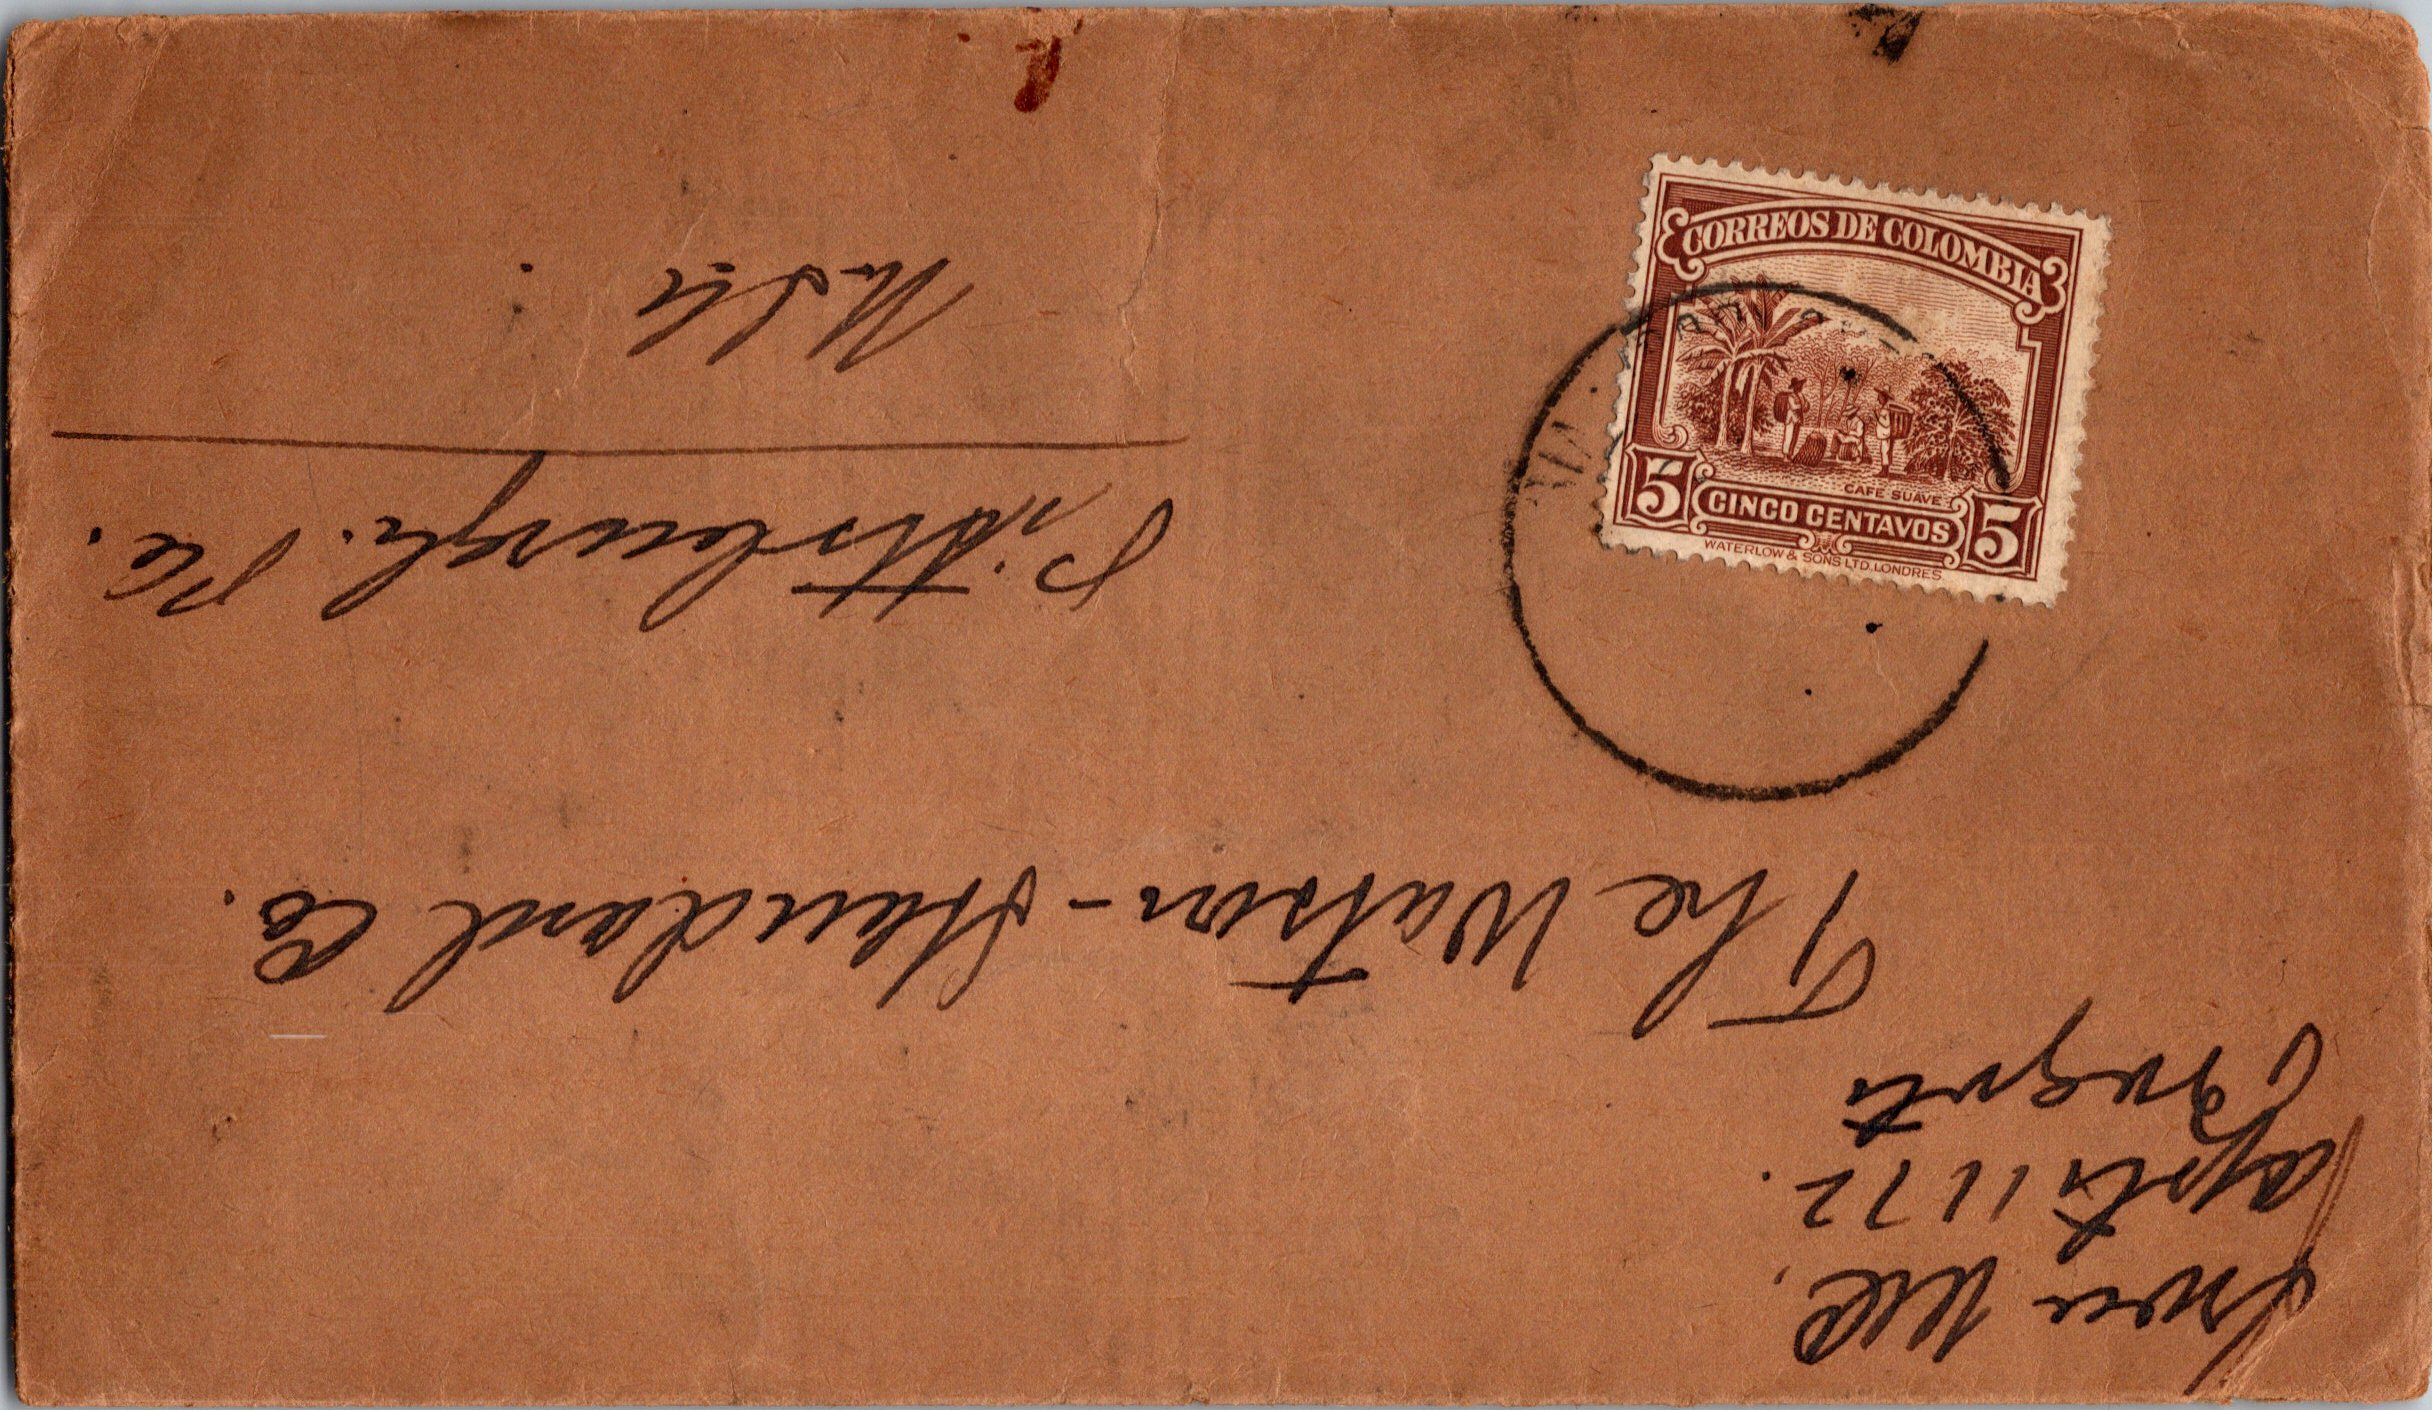 CORREOS DE COLOMBIA
CAFE SUAVE
5 CINCO CENTAVOS 5
WATERLOW & SONS LTD. LONDRES
1172
Bogota
The Watson-Standard Co.
Pittsburgh. Pa.
U.S.A.